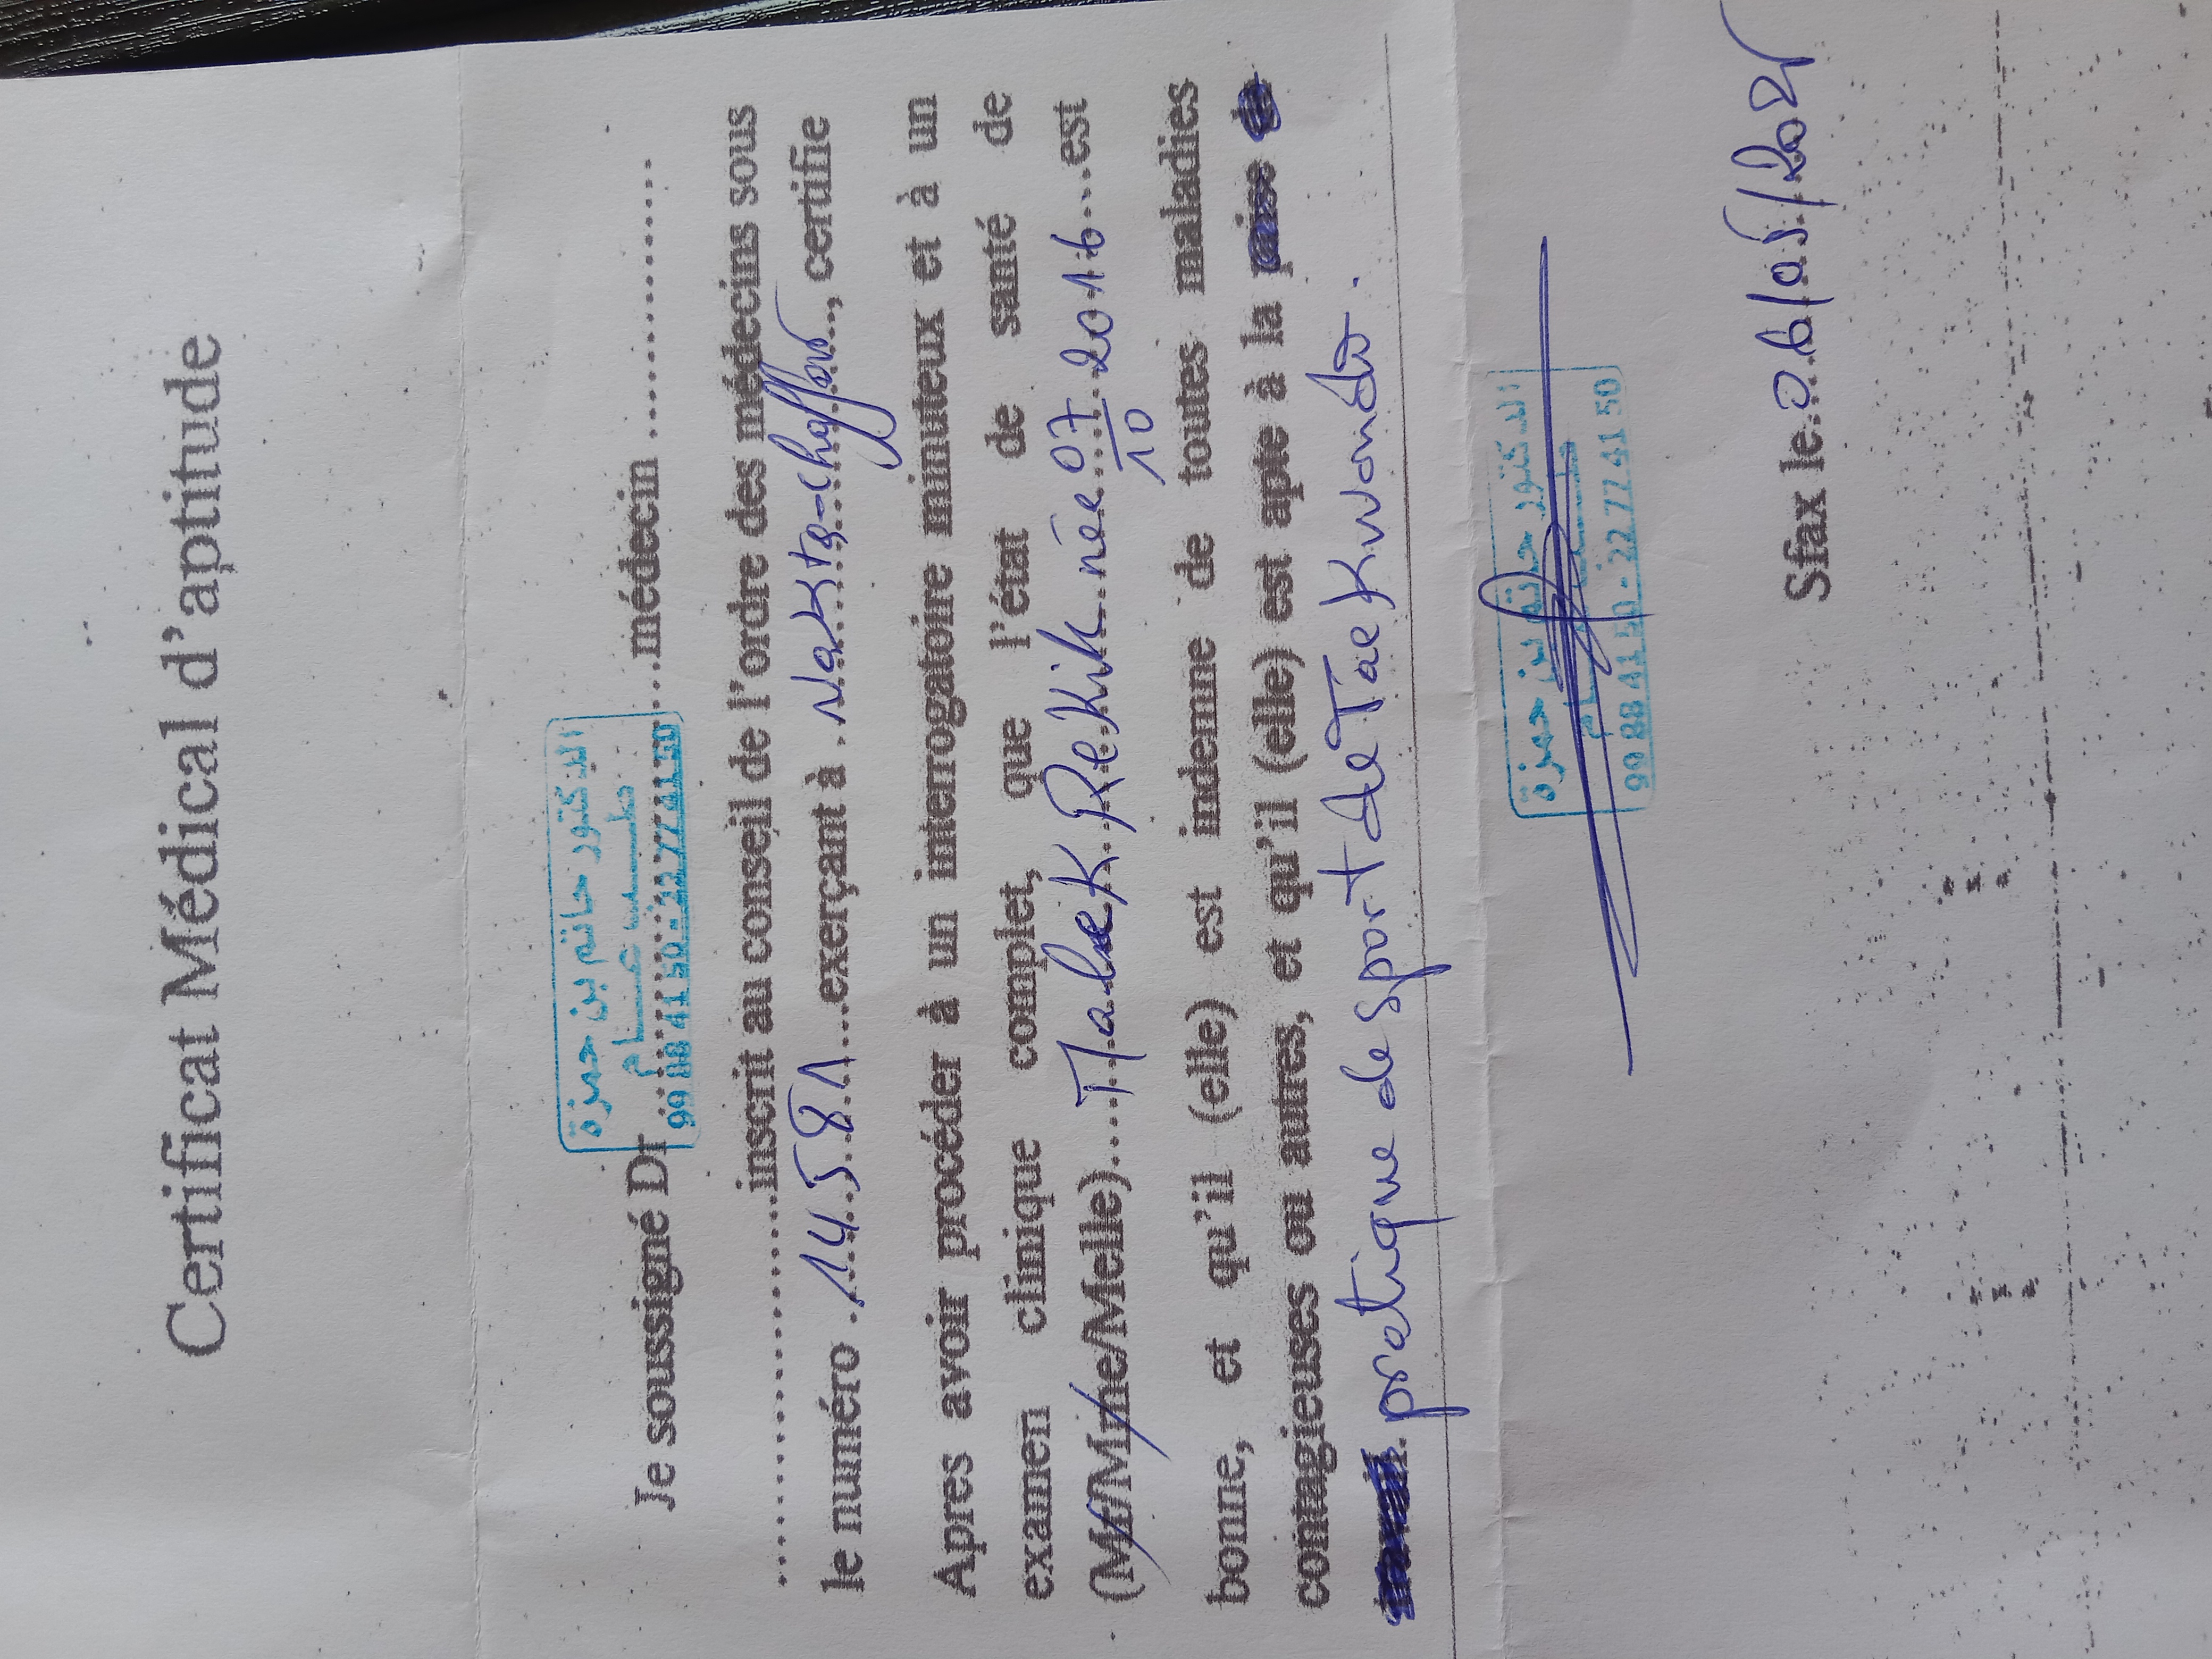 Certificat Médical d'aptitude
الدكتور حاتم بن حمزة
طب عام
99 88 41 50 - 22 77 41 50
Je soussigné Dr ... médecin ...........................
........................inscrit au conseil de l'ordre des médecins sous
le numéro .14.581...exerçant à . Nakta-chaffar..., certifie
Apres avoir procéder à un interrogatoire minuteux et à un
examen clinique complet, que l'état de santé de
(Mr/Mme/Melle).... Malek Rekik née 07/10 2016...est
bonne, et qu'il (elle) est indemne de toutes maladies
contagieuses ou autres, et qu'il (elle) est apte à la
pratique de sport de TaeKwondo.
الدكتور حاتم بن حمزة
طب عام
99 88 41 50 - 22 77 41 50
Sfax le